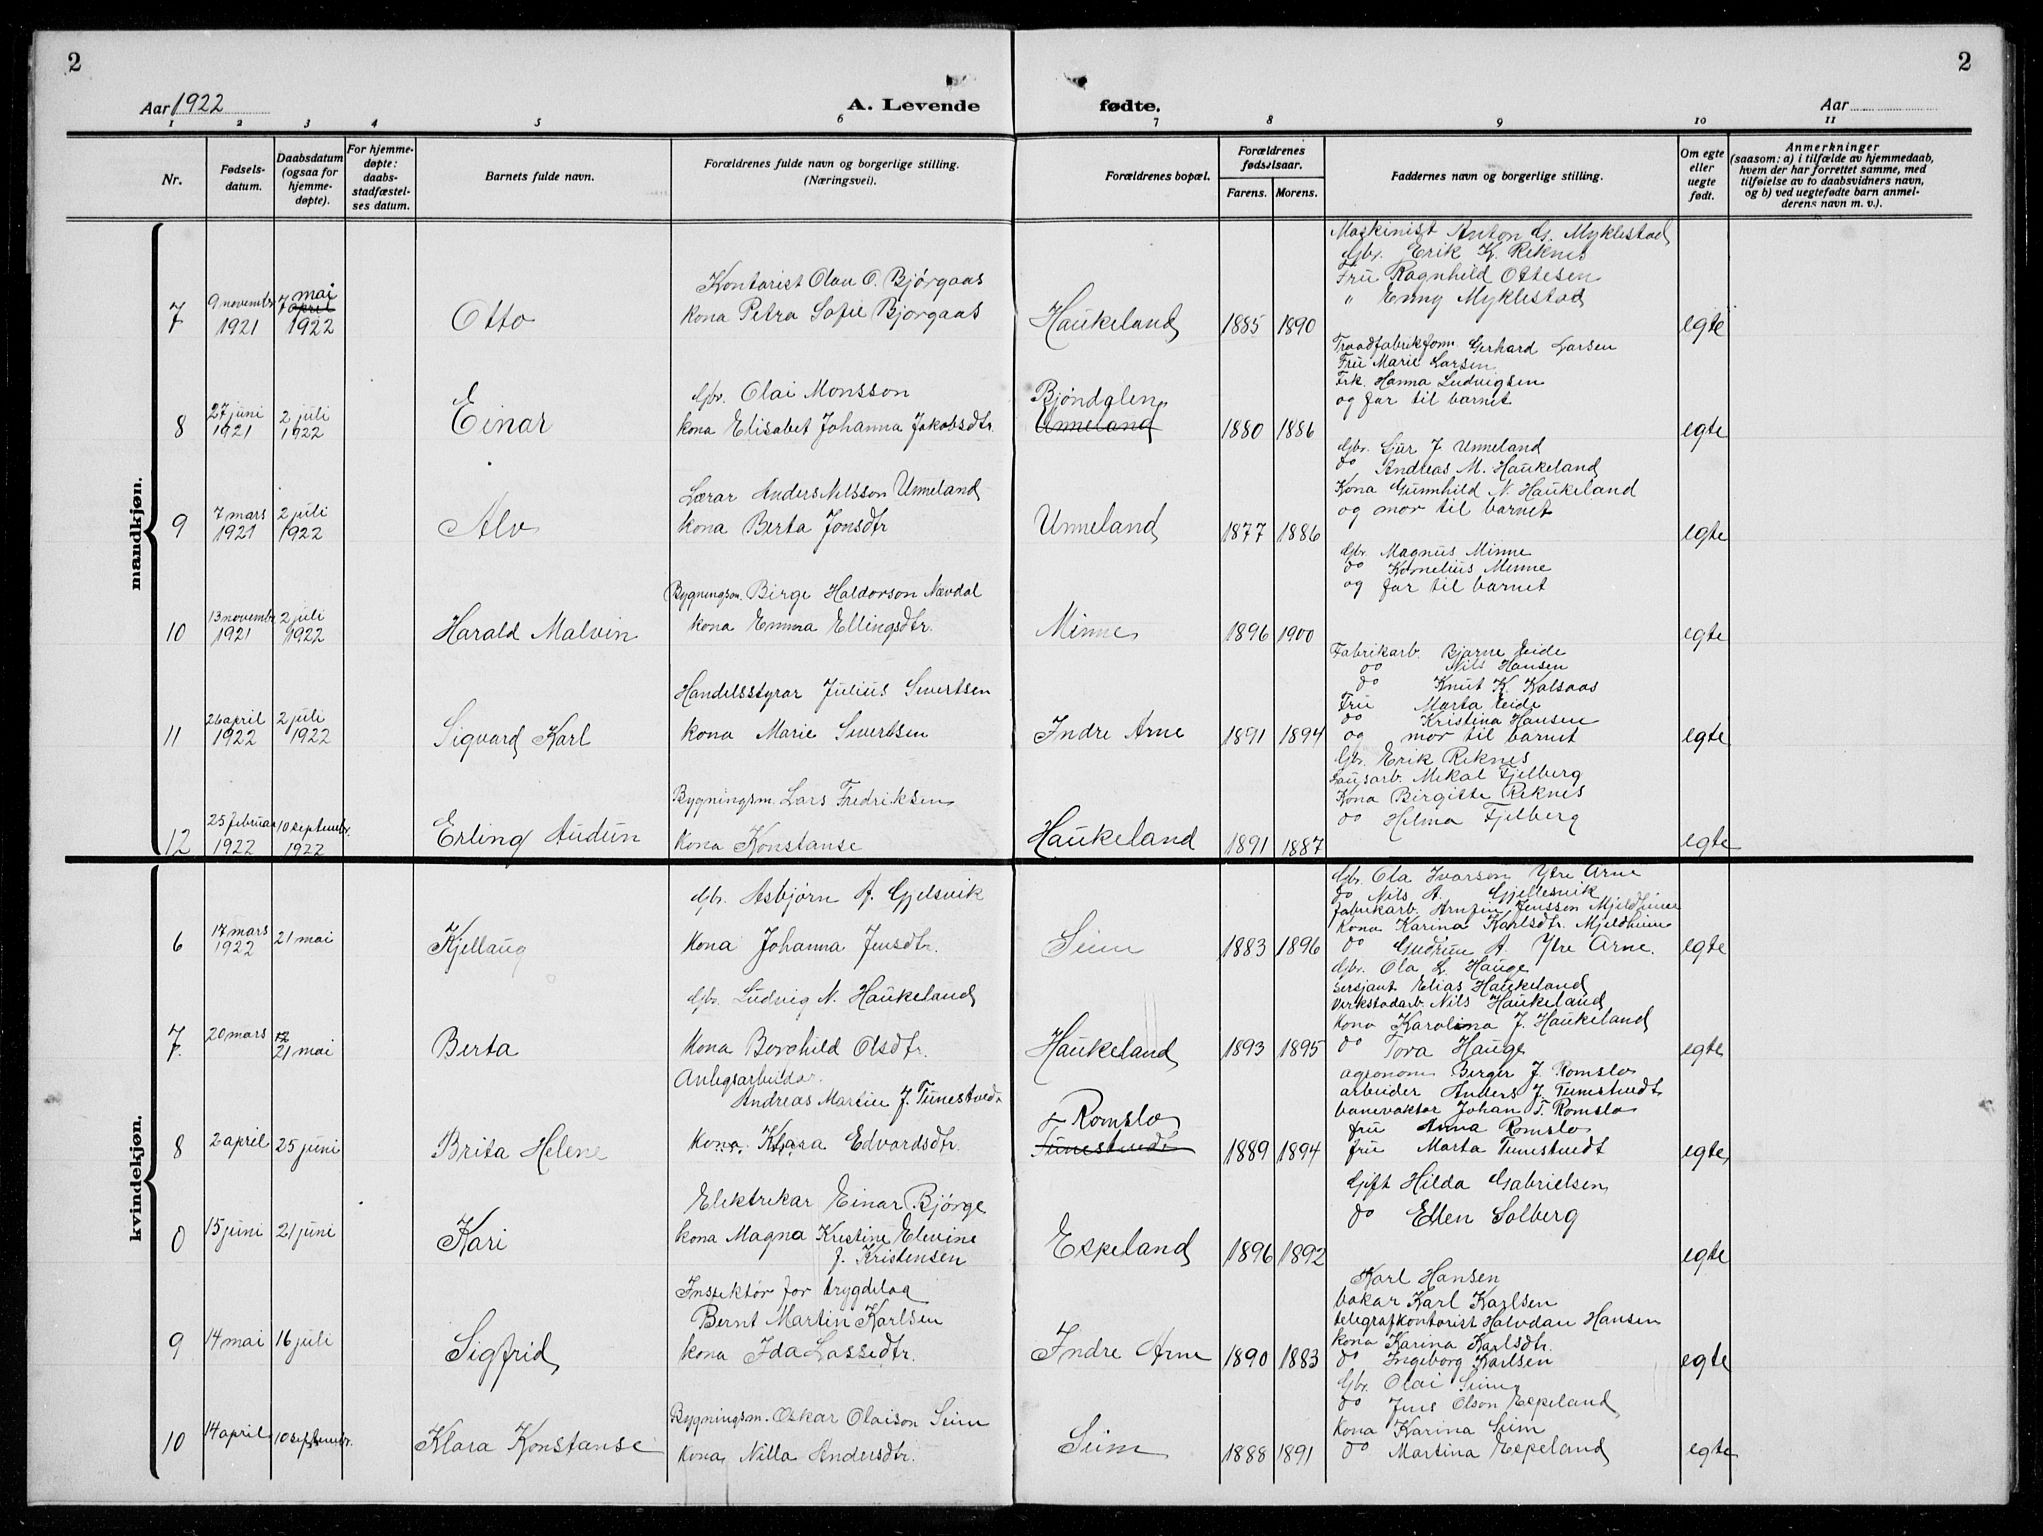 2
2
Aar 1922
A. Levende fødte.
Aar
1 2 3 4 5 6 7 8 9 10 11
Nr.
Fødsels-
datum.
Daabsdatum
(ogsaa for
hjemme-
døpte).
For hjemme-
døpte:
daabs-
stadfæstel-
ses datum.
Barnets fulde navn.
Forældrenes fulde navn og borgerlige stilling.
(Næringsvei).
Forældrenes bopæl.
Forældrenes
fødselsaar.
Farens. Morens.
Faddernes navn og borgerlige stilling.
Om egte
eller
uegte
født.
Anmerkninger
(saasom: a) i tilfælde av hjemmedaab,
hvem der har forrettet samme, med
tilføielse av to daabsvidners navn,
og b) ved uegtefødte barn anmel-
derens navn m. v.).
mandkjøn.
7
9 novembr
1921
7 mai
april
1922
Otto
Kontorist Olav O. Bjørgaas
kona Petra Sofie Bjorgaas
Haukeland
1885 1890
Maskinist Anton G. Myklestad
Gbr. Erik K. Reknes
Fru Ragnhild Ottesen
" Enny Myklestad
egte
8
27 juni
1921
2 juli
1922
Einar
Gbr. Olai Monsson
kona Elisabet Johanna Jakobsdtr.
Bjøndalen
Unneland
1880 1886
Traadfabrikform. Gerhard Larsen
Fru Marie Larsen
Frk. Hanna Ludvigsen
og far til barnet
egte
9
7 mars
1921
2 juli
1922
Alv
Lærar Anders Nilsson Unneland
kona Berta Jonsdtr
Unneland
1877 1886
Gbr. Gjur J Unneland
do Andreas M. Haukeland
Kona Gunnhild N. Haukeland
og mor til barnet
egte
10
13 novembr
1921
2 juli
1922
Harald Malvin
Bygningsm. Birge Haldorson Nævdal
kona Emma Ellingsdtr.
Minne
1896 1900
Gbr. Magnus Minne
do Kornelius Minne
og far til barnet
egte
11
26 april
1922
2 juli
1922
Sigvard Karl
Handelsstyrar Julius Sivertsen
kona Marie Sivertsen
Indre Arne
1891 1894
Fabrikarb. Bjarne Eide
do Nils Hansen
do Knut K. Kalsaas
Fru Marta Eide
do Kristina Hansen
og mor til barnet
egte
12
25 februar
1922
10 septembr.
1922
Erling Audun
Bygningsm. Lars Fredriksen
kona Konstanse
Haukeland
1891 1887
Gbr. Erik Reknes
Lausarb. Mikal Fjelberg
Kona Birgitte Reknes
do Helma Fjelberg
egte
kvindekjøn.
6
17 mars
1922
21 mai
Kjellaug
Gbr. Asbjørn A. Gjelsvik
kona Johanna Jensdtr.
Seim
1883 1896
Gbr. Ola Ivarson Ytre Arne
do Nils A. Gjellesvik
fabrikarb. Arnfin Jensson Mjeldheim
kona Karina Karlsdtr. Mjeldheim
do Gudrun A. Ytre Arne.
egte
7
20 mars
21 mai
Berta
Gbr. Ludvig N. Haukeland
kona Borghild Olsdtr.
Haukeland
1893 1895
Gbr. Ola L. Hauge
Sersjant Elias Haukeland
Verkstadarb. Nils Haukeland
kona Karolina J. Haukeland
do Tora Hauge
egte
8
2 april
25 juni
Brita Helene
Anlegsarbeidar
Andreas Martin J. Tunestvedt
kona Klara Edvardsdtr.
Romslo
Tunestvedt
1889 1894
agronom Berger J. Romslo
arbeider Anders J. Tunestvedt
banevaktor Johan T. Romslo
fru Anna Romslo
fru Marta Tunestvedt
egte
0
15 juni
21 juni
Kari
Elektrikar Einar Bjørge
kona Magna Kristine Elevine
J. Kristensen
Espeland
1896 1892
Gift Hilda Gabrielsen
do Ellen Solberg
egte
9
14 mai
16 juli
Sigfrid
Inspektør for trygdelag
Bernt Martin Karlsen
kona Ida Lassedtr.
Indre Arne
1890 1883
Karl Hansen
bakar Karl Karlsen
telegrafkontorist Halvdan Hansen
kona Karina Karlsdtr.
do Ingeborg Karlsen
egte
10
14 april
10 septembr.
Klara Konstanse
Bygningsm. Oskar Olaison Seim
kona Nilla Andersdtr.
Seim
1888 1891
Gbr. Olai Seim
do Jens Olson Espeland
kona Karina Seim
do Martina Espeland
egte